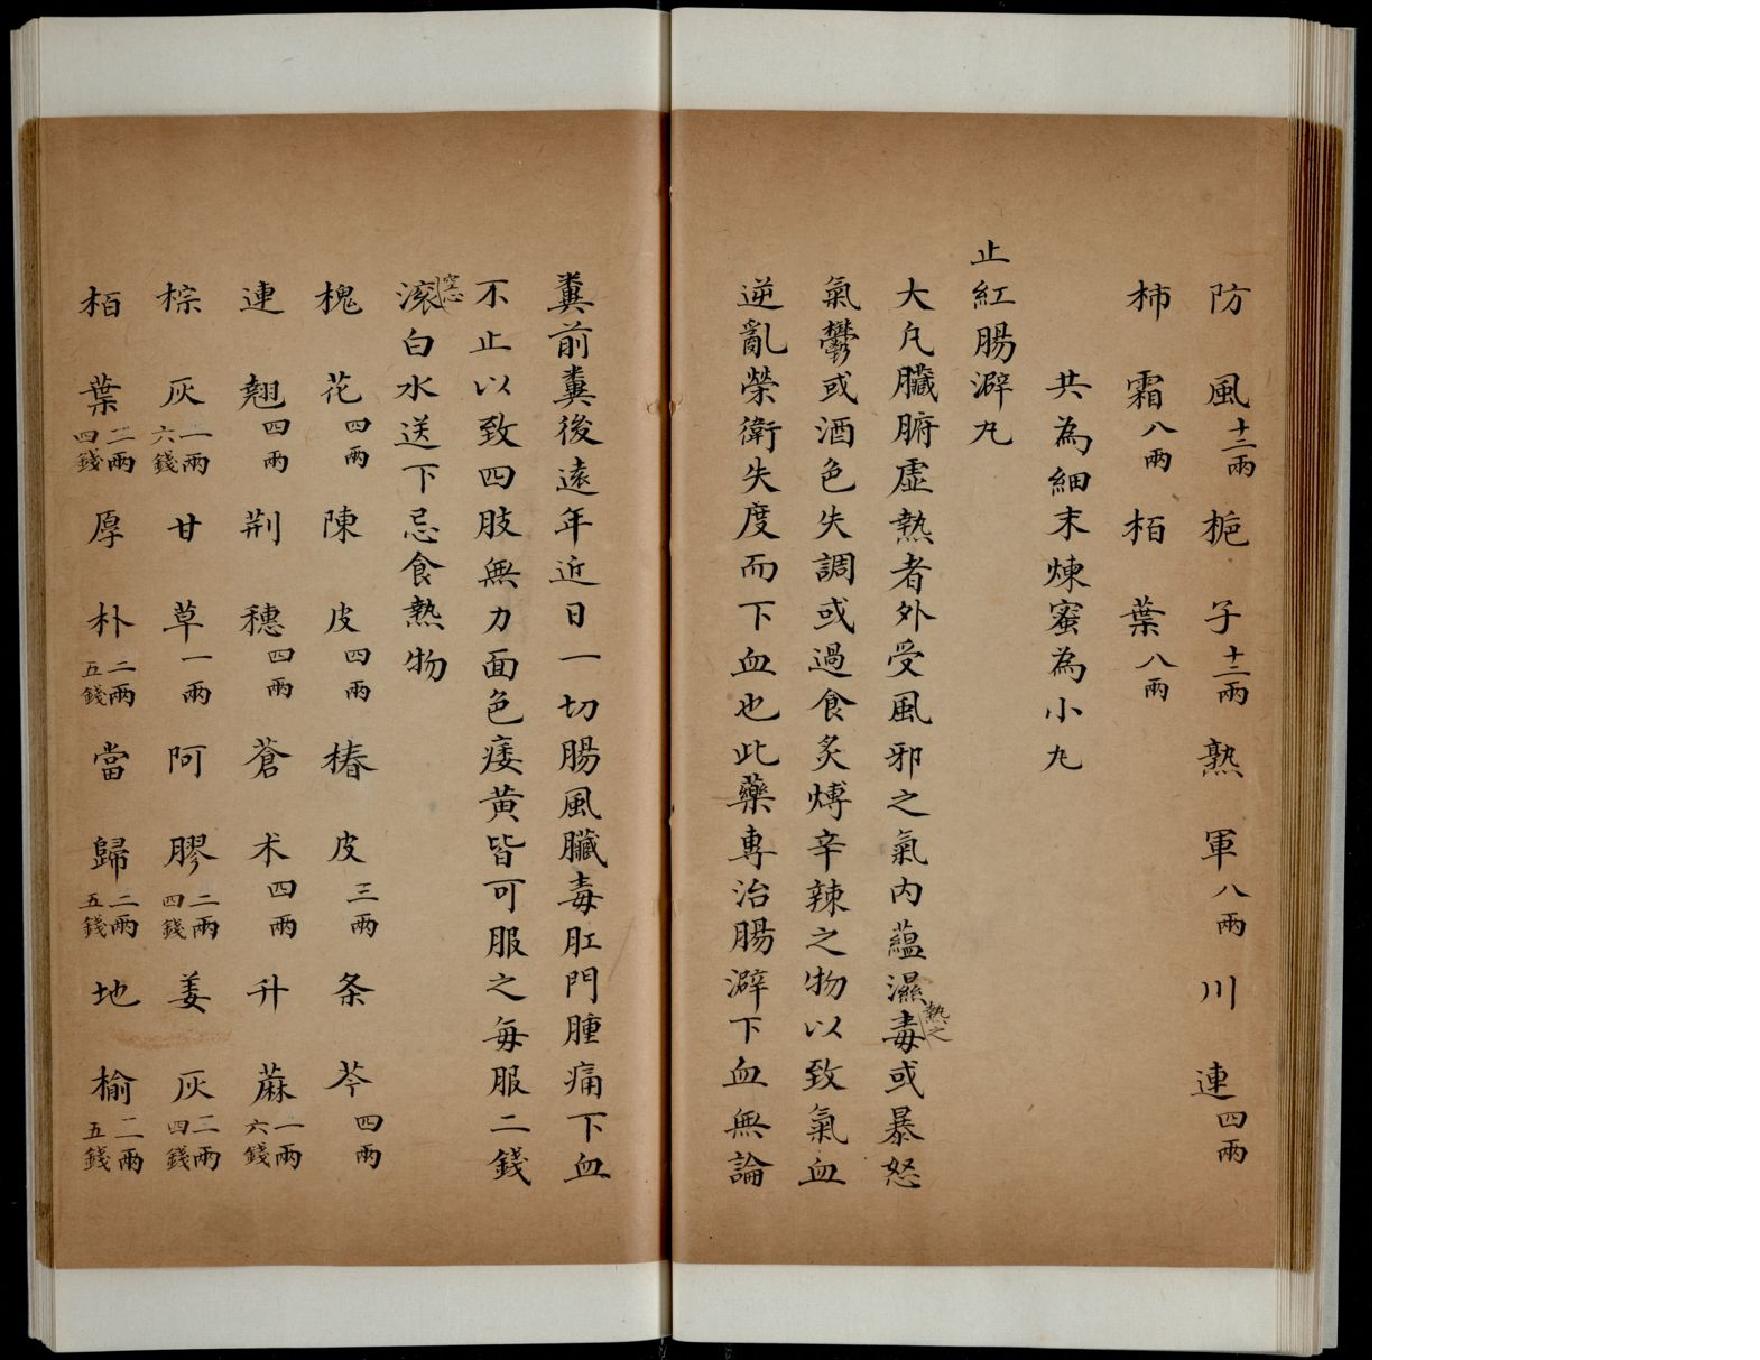 防風十二兩梔子十二兩熟軍八兩川連四兩
柿霜八兩栢葉八兩
共為細末煉蜜為小丸
止紅腸澼丸
大凡臟腑虛熱者外受風邪之氣內蘊濕熱之毒或暴怒
氣鬱或酒色失調或過食炙煿辛辣之物以致氣血
逆亂榮衛失度而下血也此藥專治腸澼下血無論
糞前糞後遠年近日一切腸風臟毒肛門腫痛下血
不止以致四肢無力面色痿黃皆可服之每服二錢
空心滾白水送下忌食熱物
槐花四兩陳皮四兩椿皮三兩条芩四兩
連翹四兩荊穗四兩蒼朮四兩升蔴一兩六錢
棕灰一兩六錢甘草一兩阿膠二兩四錢姜灰二兩四錢
栢葉二兩四錢厚朴二兩五錢當歸二兩五錢地榆二兩五錢